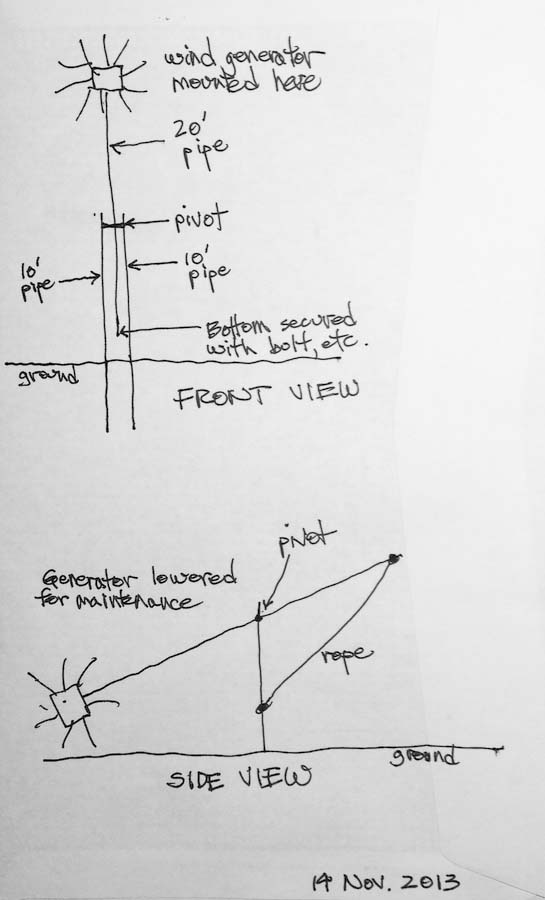 wind generator
mounted here
20'
pipe
pivot
10'
pipe
10'
pipe
Bottom secured
with bolt, etc.
ground
FRONT VIEW
pivot
Generator lowered
for maintenance
rope
ground
SIDE VIEW
14 Nov. 2013